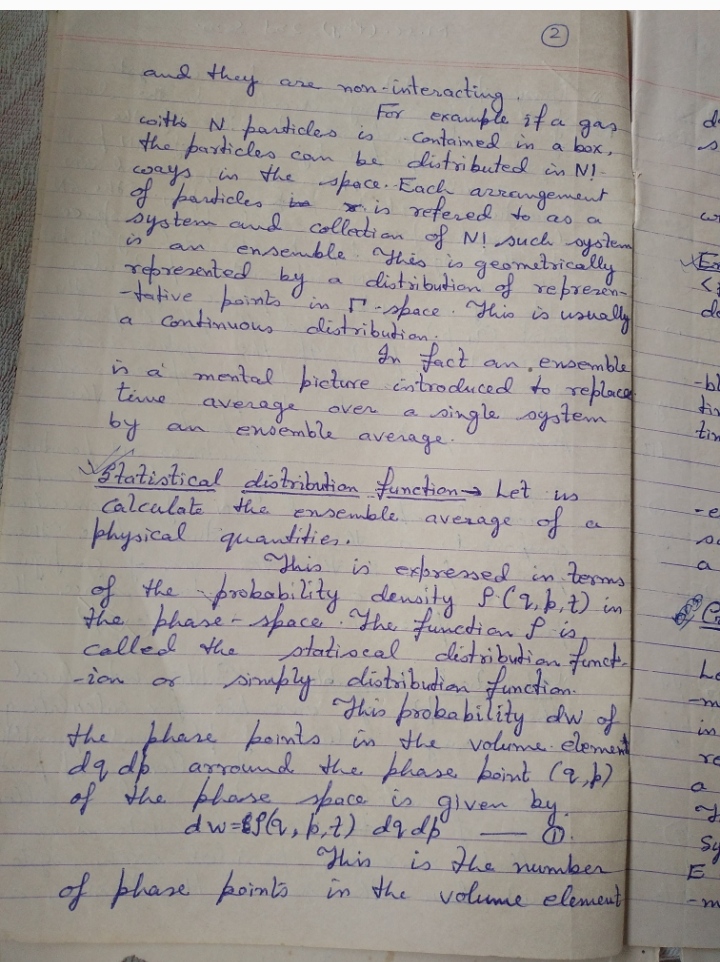 2
and they are non-interacting.
For example if a gas
with N particles is contained in a box,
the particles can be distributed in N!
ways in the space. Each arrangement
of particles is refered to as a
system and collection of N! such system
is an ensemble. This is geometrically
represented by a distribution of represen-
-tative points in Γ-space. This is usually
a continuous distribution.
In fact an ensemble
is a mental picture introduced to replace
time average over a single system
by an ensemble average.
Statistical distribution function → Let us
calculate the ensemble average of a
physical quantities.
This is expressed in terms
of the probability density ρ(q,p,t) in
the phase-space. The function ρ is
called the statiscal distribution funct-
-ion or simply distribution function.
This probability dw of
the phase points in the volume element
dq dp arround the phase point (q,p)
of the phase space is given by
dw=ρ(q, p, t) dq dp — ①
This is the number
of phase points in the volume element